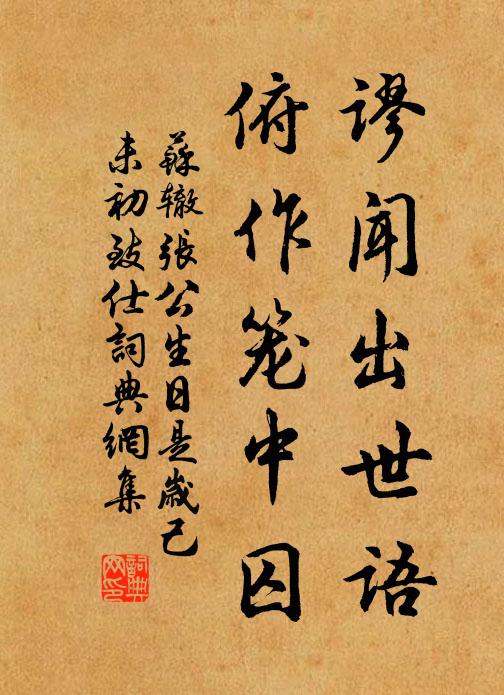 谬闻出世语
俯作笼中囚
蘇辙張公生日是歲己
未初致仕詞典網集
詞典网印